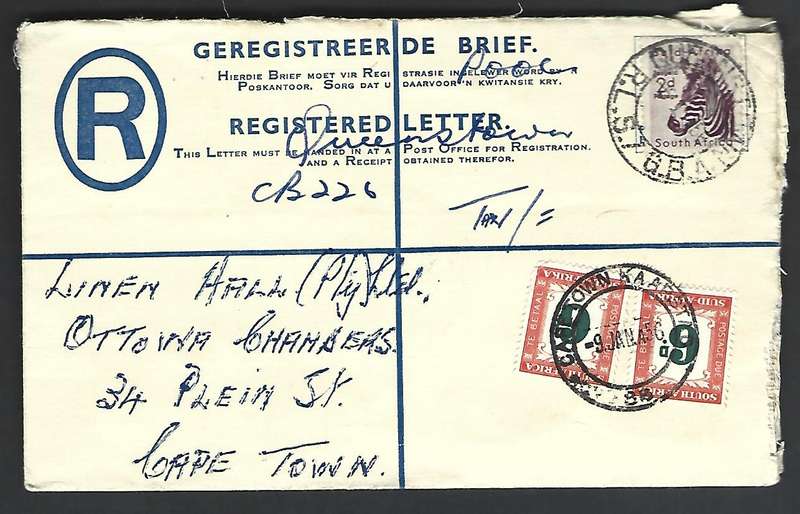 GEREGISTREERDE BRIEF.
HIERDIE BRIEF MOET VIR REGISTRASIE INGELEWER WORD BY 'N
POSKANTOOR. SORG DAT U DAARVOOR 'N KWITANSIE KRY.
R
REGISTERED LETTER.
Queenstown
THIS LETTER MUST BE HANDED IN AT A POST OFFICE FOR REGISTRATION
AND A RECEIPT OBTAINED THEREFOR.
CB226
Tax 1/=
2d
South Africa
R.L.S.
G.B.A.
LINEN HALL (Pty) Ltd.,
OTTOWA CHAMBERS.
34 PLEIN St.
CAPE TOWN.
SUID-AFRIKA
POSTAGE DUE
TE BETAAL
6D
SOUTH AFRICA
CAPE TOWN KAAPSTAD
-9 JAN 56